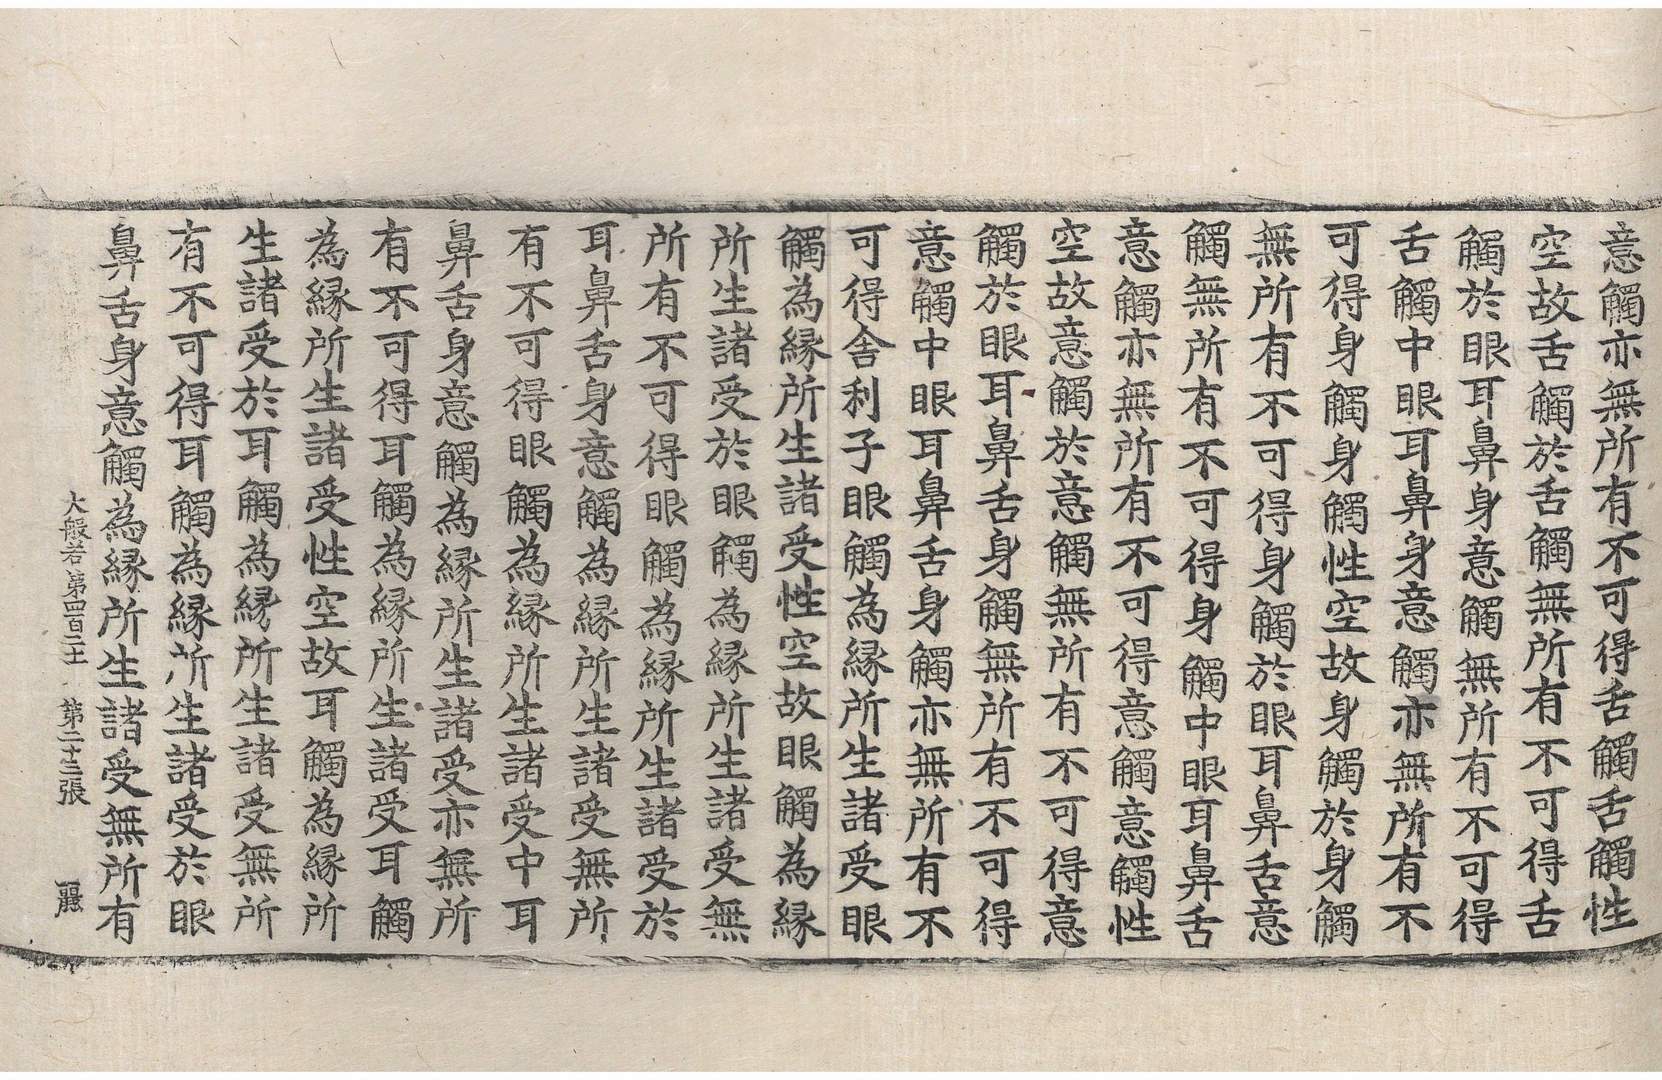 意觸亦無所有不可得舌觸舌觸性
空故舌觸於舌觸無所有不可得舌
觸於眼耳鼻身意觸無所有不可得
舌觸中眼耳鼻身意觸亦無所有不
可得身觸身觸性空故身觸於身觸
無所有不可得身觸於眼耳鼻舌意
觸無所有不可得身觸中眼耳鼻舌
意觸亦無所有不可得意觸意觸性
空故意觸於意觸無所有不可得意
觸於眼耳鼻舌身觸無所有不可得
意觸中眼耳鼻舌身觸亦無所有不
可得舍利子眼觸為緣所生諸受眼
觸為緣所生諸受性空故眼觸為緣
所生諸受於眼觸為緣所生諸受無
所有不可得眼觸為緣所生諸受於
耳鼻舌身意觸為緣所生諸受無所
有不可得眼觸為緣所生諸受中耳
鼻舌身意觸為緣所生諸受亦無所
有不可得耳觸為緣所生諸受耳觸
為緣所生諸受性空故耳觸為緣所
生諸受於耳觸為緣所生諸受無所
有不可得耳觸為緣所生諸受於眼
鼻舌身意觸為緣所生諸受無所有
大般若第四百二十一 第二十三張 麗